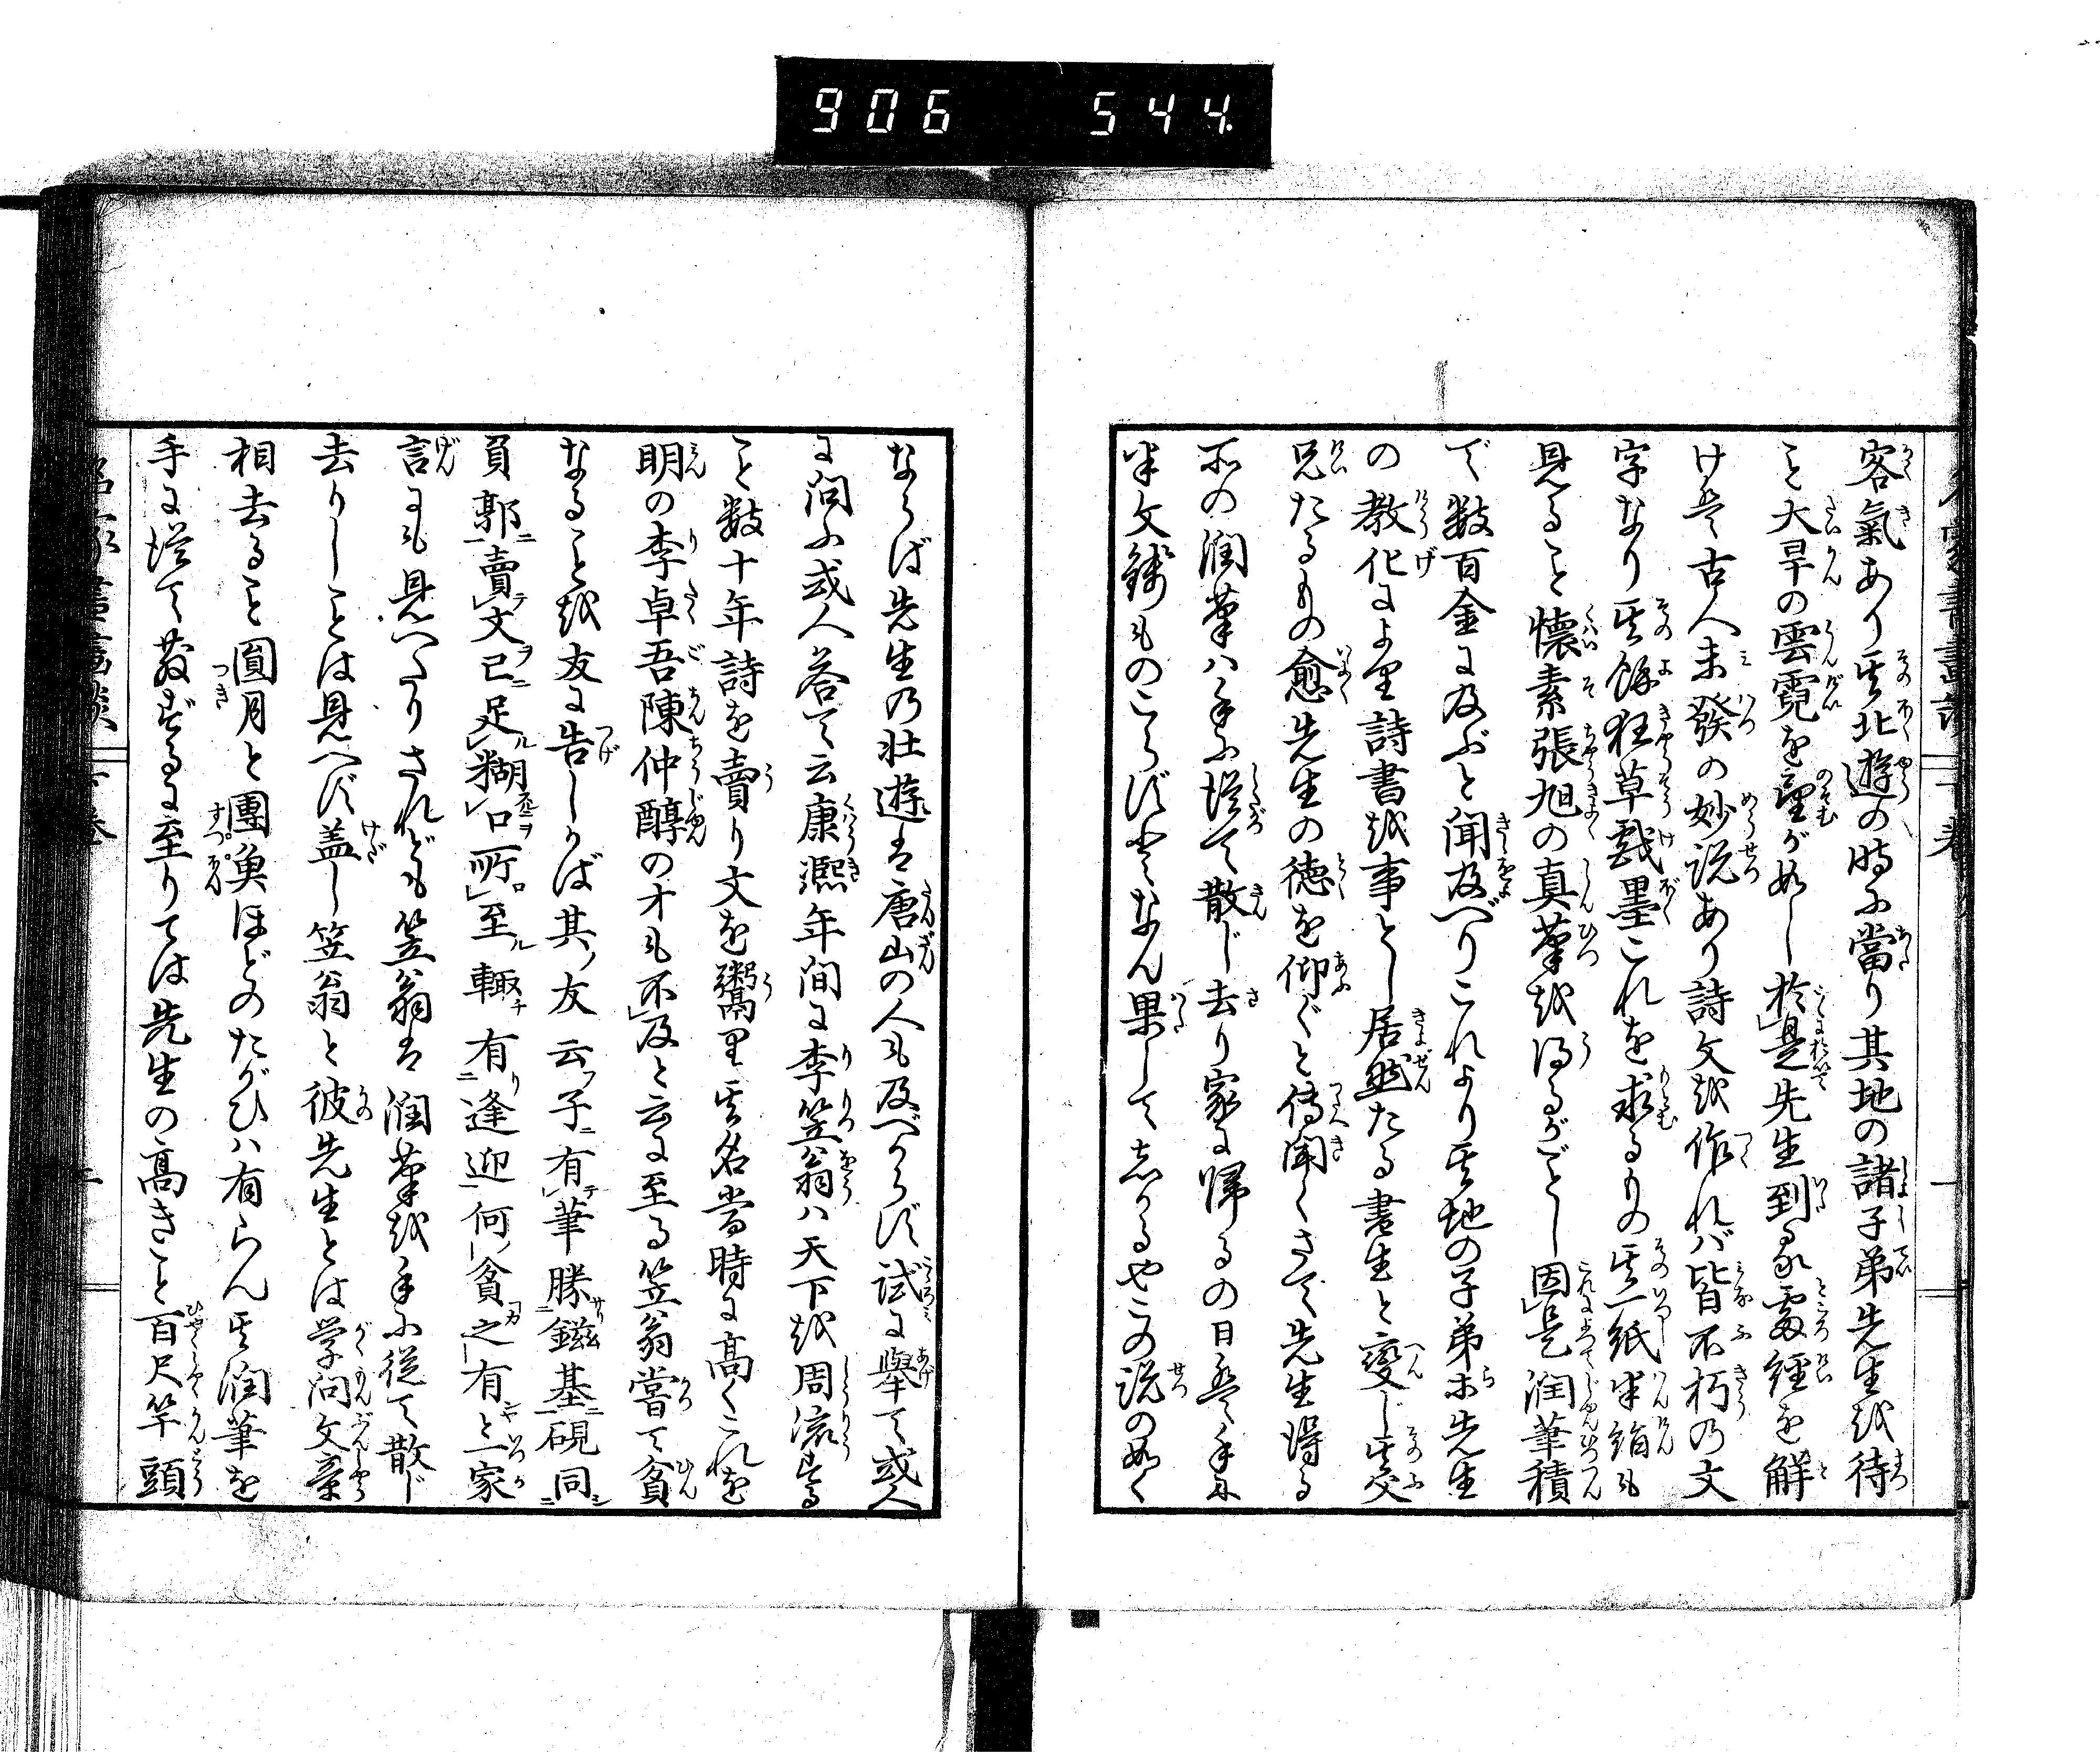 906 544
客氣あり其北遊の時に當り其地の諸子弟先生を待
こと大旱の雲霓を望がごとし於是先生到る處經を解
けば古人未發の妙説あり詩文を作れば皆不朽の文
字なり其餘狂草戯墨これを求るもの其一紙半絹も
見ること懷素張旭の真筆を得るがごとし因是潤筆積
で数百金に及ぶと聞及べりこれより其地の子弟等先生
の教化により詩書を事とし居然たる書生と變じ其父
兄たるもの愈先生の徳を仰ぐと傳聞くさて先生得る
所の潤筆ハ手に從て散じ去り家に帰るの日
半文錢ものこらずとなん果してしかるやこの説の如く
ならば先生の壮遊は唐山の人も及べからず試に擧て或人
に問ふ或人答て云康熙年间に李笠翁ハ天下を周流する
こと数十年詩を賣り文を鬻里其名當時に高くこれを
明の李卓吾陳仲醇の才も不及と云に至る笠翁嘗て貧
なることを友に告しかば其ノ友云フ子有筆勝鎡基硯同
負郭賣文已足糊口所至輙有逢迎何貧之有と一家
言にも見へたりされども笠翁は潤筆を手に從て散じ
去りしことは見へず盖し笠翁と彼先生とは学问文章
相去ること圓月と團魚ほどのたがひハ有らん其潤筆を
手に從て散ずるに至りては先生の高きこと百尺竿頭